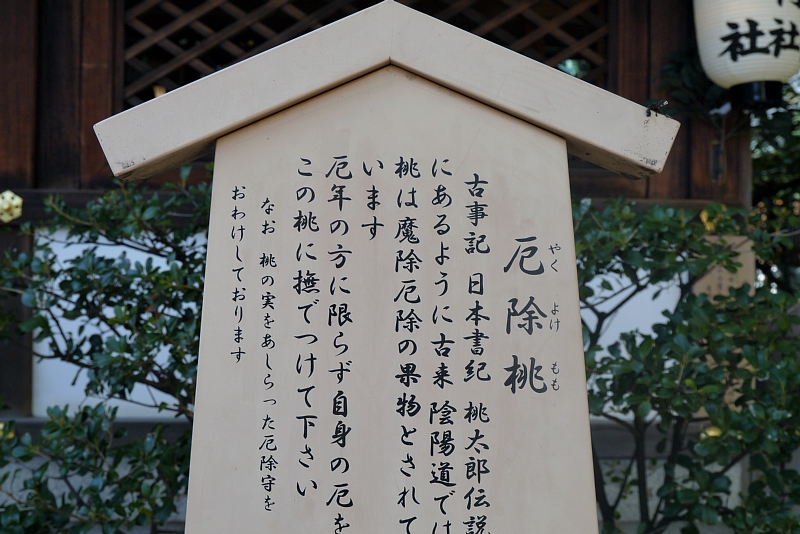 厄除桃
やく よけ もも
古事記 日本書紀 桃太郎伝説
にあるように古来 陰陽道では
桃は魔除厄除の果物とされて
います
厄年の方に限らず自身の厄を
この桃に撫でつけて下さい
なお 桃の実をあしらった厄除守を
おわけしております
社
社